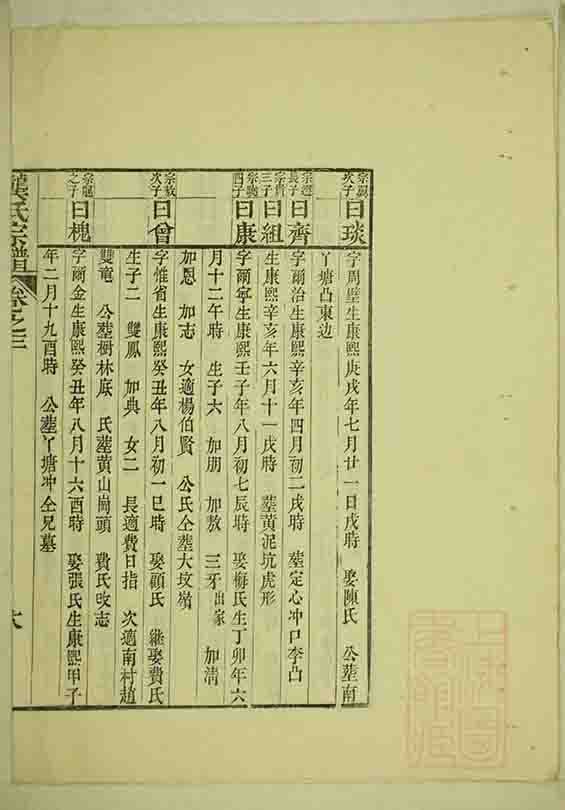 次子 曰琰 字周璧生康熙庚戌年七月廿一日戌時 娶陳氏 公葬南
丫塘凸東边
長子 曰齊 字爾治生康熙辛亥年四月初二戌時 葬定心冲口李凸
三子 曰組 生康熙辛亥年六月十一戌時 葬黄泥坑虎形
四子 曰康 字爾寧生康熙壬子年八月初七辰時 娶梅氏生丁卯年六
月十二午時 生子六 加朋 加敖 三牙出家 加清
加恩 加志 女適楊伯賢 公氏仝葬大坟嶺
次子 曰曾 字惟省生康熙癸丑年八月初一巳時 娶顧氏 継娶費氏
生子二 雙鳳 加典 女二 長適費日指 次適南村趙
雙竜 公葬樹林底 氏葬黄山崗頭 費氏改志
之子 曰槐 字爾金生康熙癸丑年八月十六酉時 娶張氏生康熙甲子
年二月十九酉時 公葬丫塘冲仝兄墓
氏宗譜 卷之三